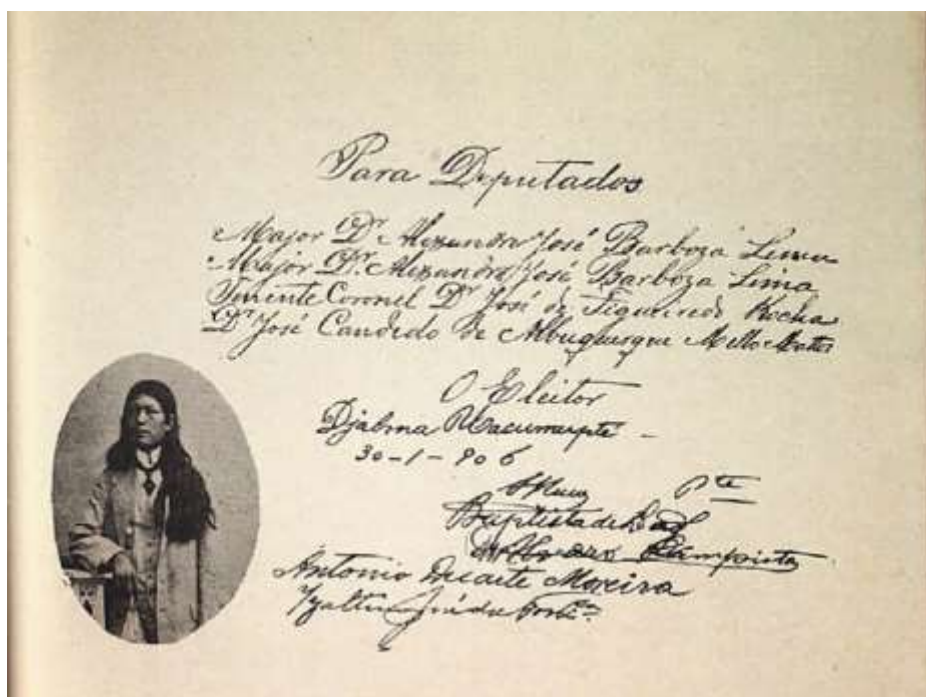 Para Deputados
Major Dr. Alexandre José Barboza Lima
Major Dr. Alexandre José Barboza Lima
Tenente Coronel Dr José de Figueiredo Rocha
Dr José Candido de Albuquerque Mello Mattos
O Eleitor
Djalma
30-1-906
Pte
Baptista de
Antonio Duarte Moreira